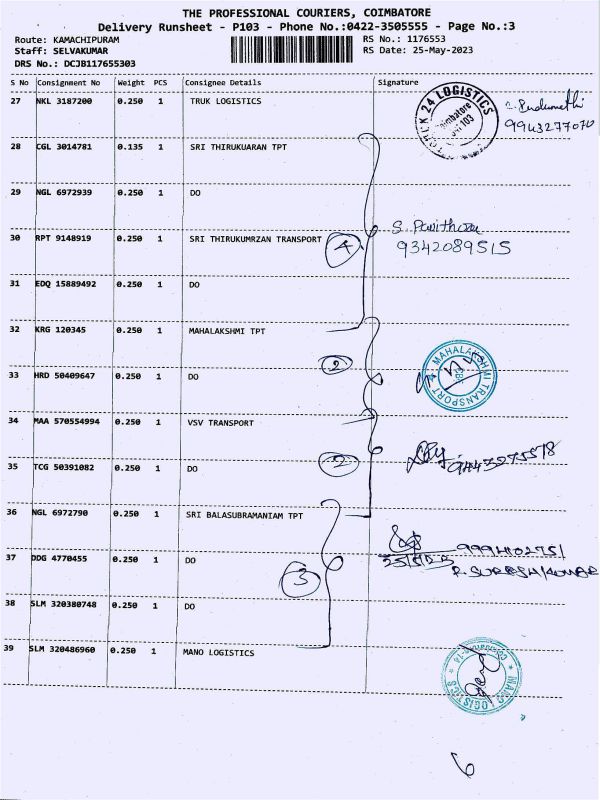 THE PROFESSIONAL COURIERS, COIMBATORE
Delivery Runsheet - P103 - Phone No.:0422-3505555 - Page No.:3
Route: KAMACHIPURAM RS No.: 1176553
Staff: SELVAKUMAR RS Date: 25-May-2023
DRS No.: DCJB117655303
S No Consignment No Weight PCS Consignee Details Signature
27 NKL 3187200 0.250 1 TRUK LOGISTICS
24 LOGISTICS
9943277070
28 CGL 3014781 0.135 1 SRI THIRUKUARAN TPT
29 NGL 6972939 0.250 1 DO
30 RPT 9148919 0.250 1 SRI THIRUKUMRZAN TRANSPORT 4 S. Pavithra
9342089515
31 EDQ 15889492 0.250 1 DO
32 KRG 120345 0.250 1 MAHALAKSHMI TPT
2 MAHALAKSHMI TRANSPORT
33 HRD 50409647 0.250 1 DO
34 MAA 570554994 0.250 1 VSV TRANSPORT
35 TCG 50391082 0.250 1 DO 2
36 NGL 6972790 0.250 1 SRI BALASUBRAMANIAM TPT
37 DDG 4770455 0.250 1 DO 3
38 SLM 320380748 0.250 1 DO
39 SLM 320486960 0.250 1 MANO LOGISTICS
MANO LOGISTICS
6